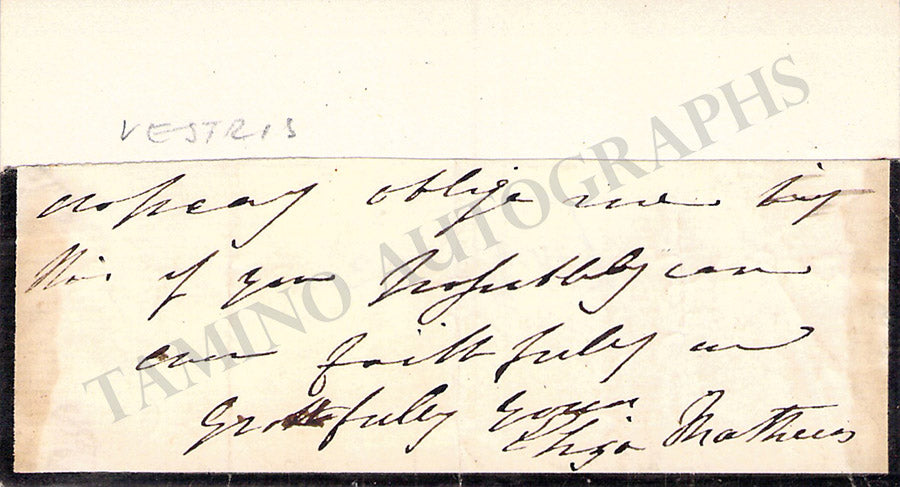 VESTRIS
TAMINO AUTOGRAPHS
oblige me by
this if you possibly can
ever faithfully and
gratefully yours
Eliza Mathews